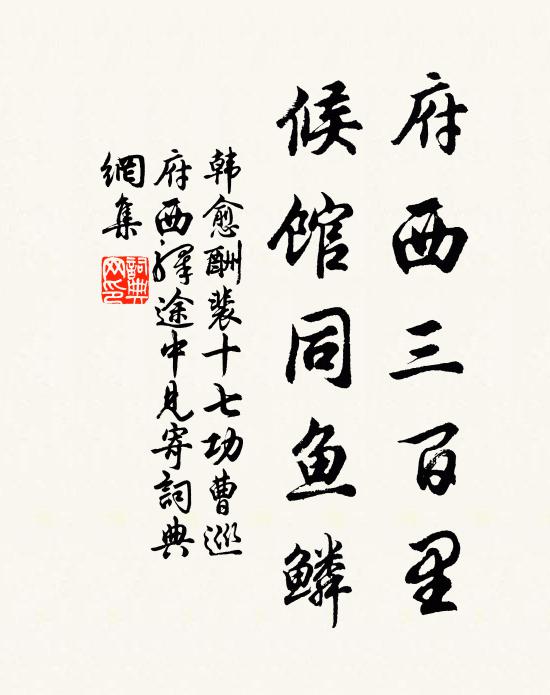 府西三百里
候馆同鱼鳞
韩愈酬裴十七功曹巡
府西驿途中见寄词典
網集
詞典網印